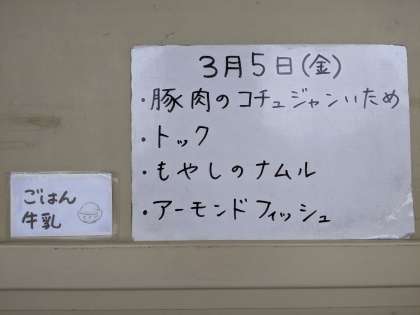 3月5日(金)
・豚肉のコチュジャンいため
・トック
・もやしのナムル
・アーモンドフィッシュ
ごはん
牛乳